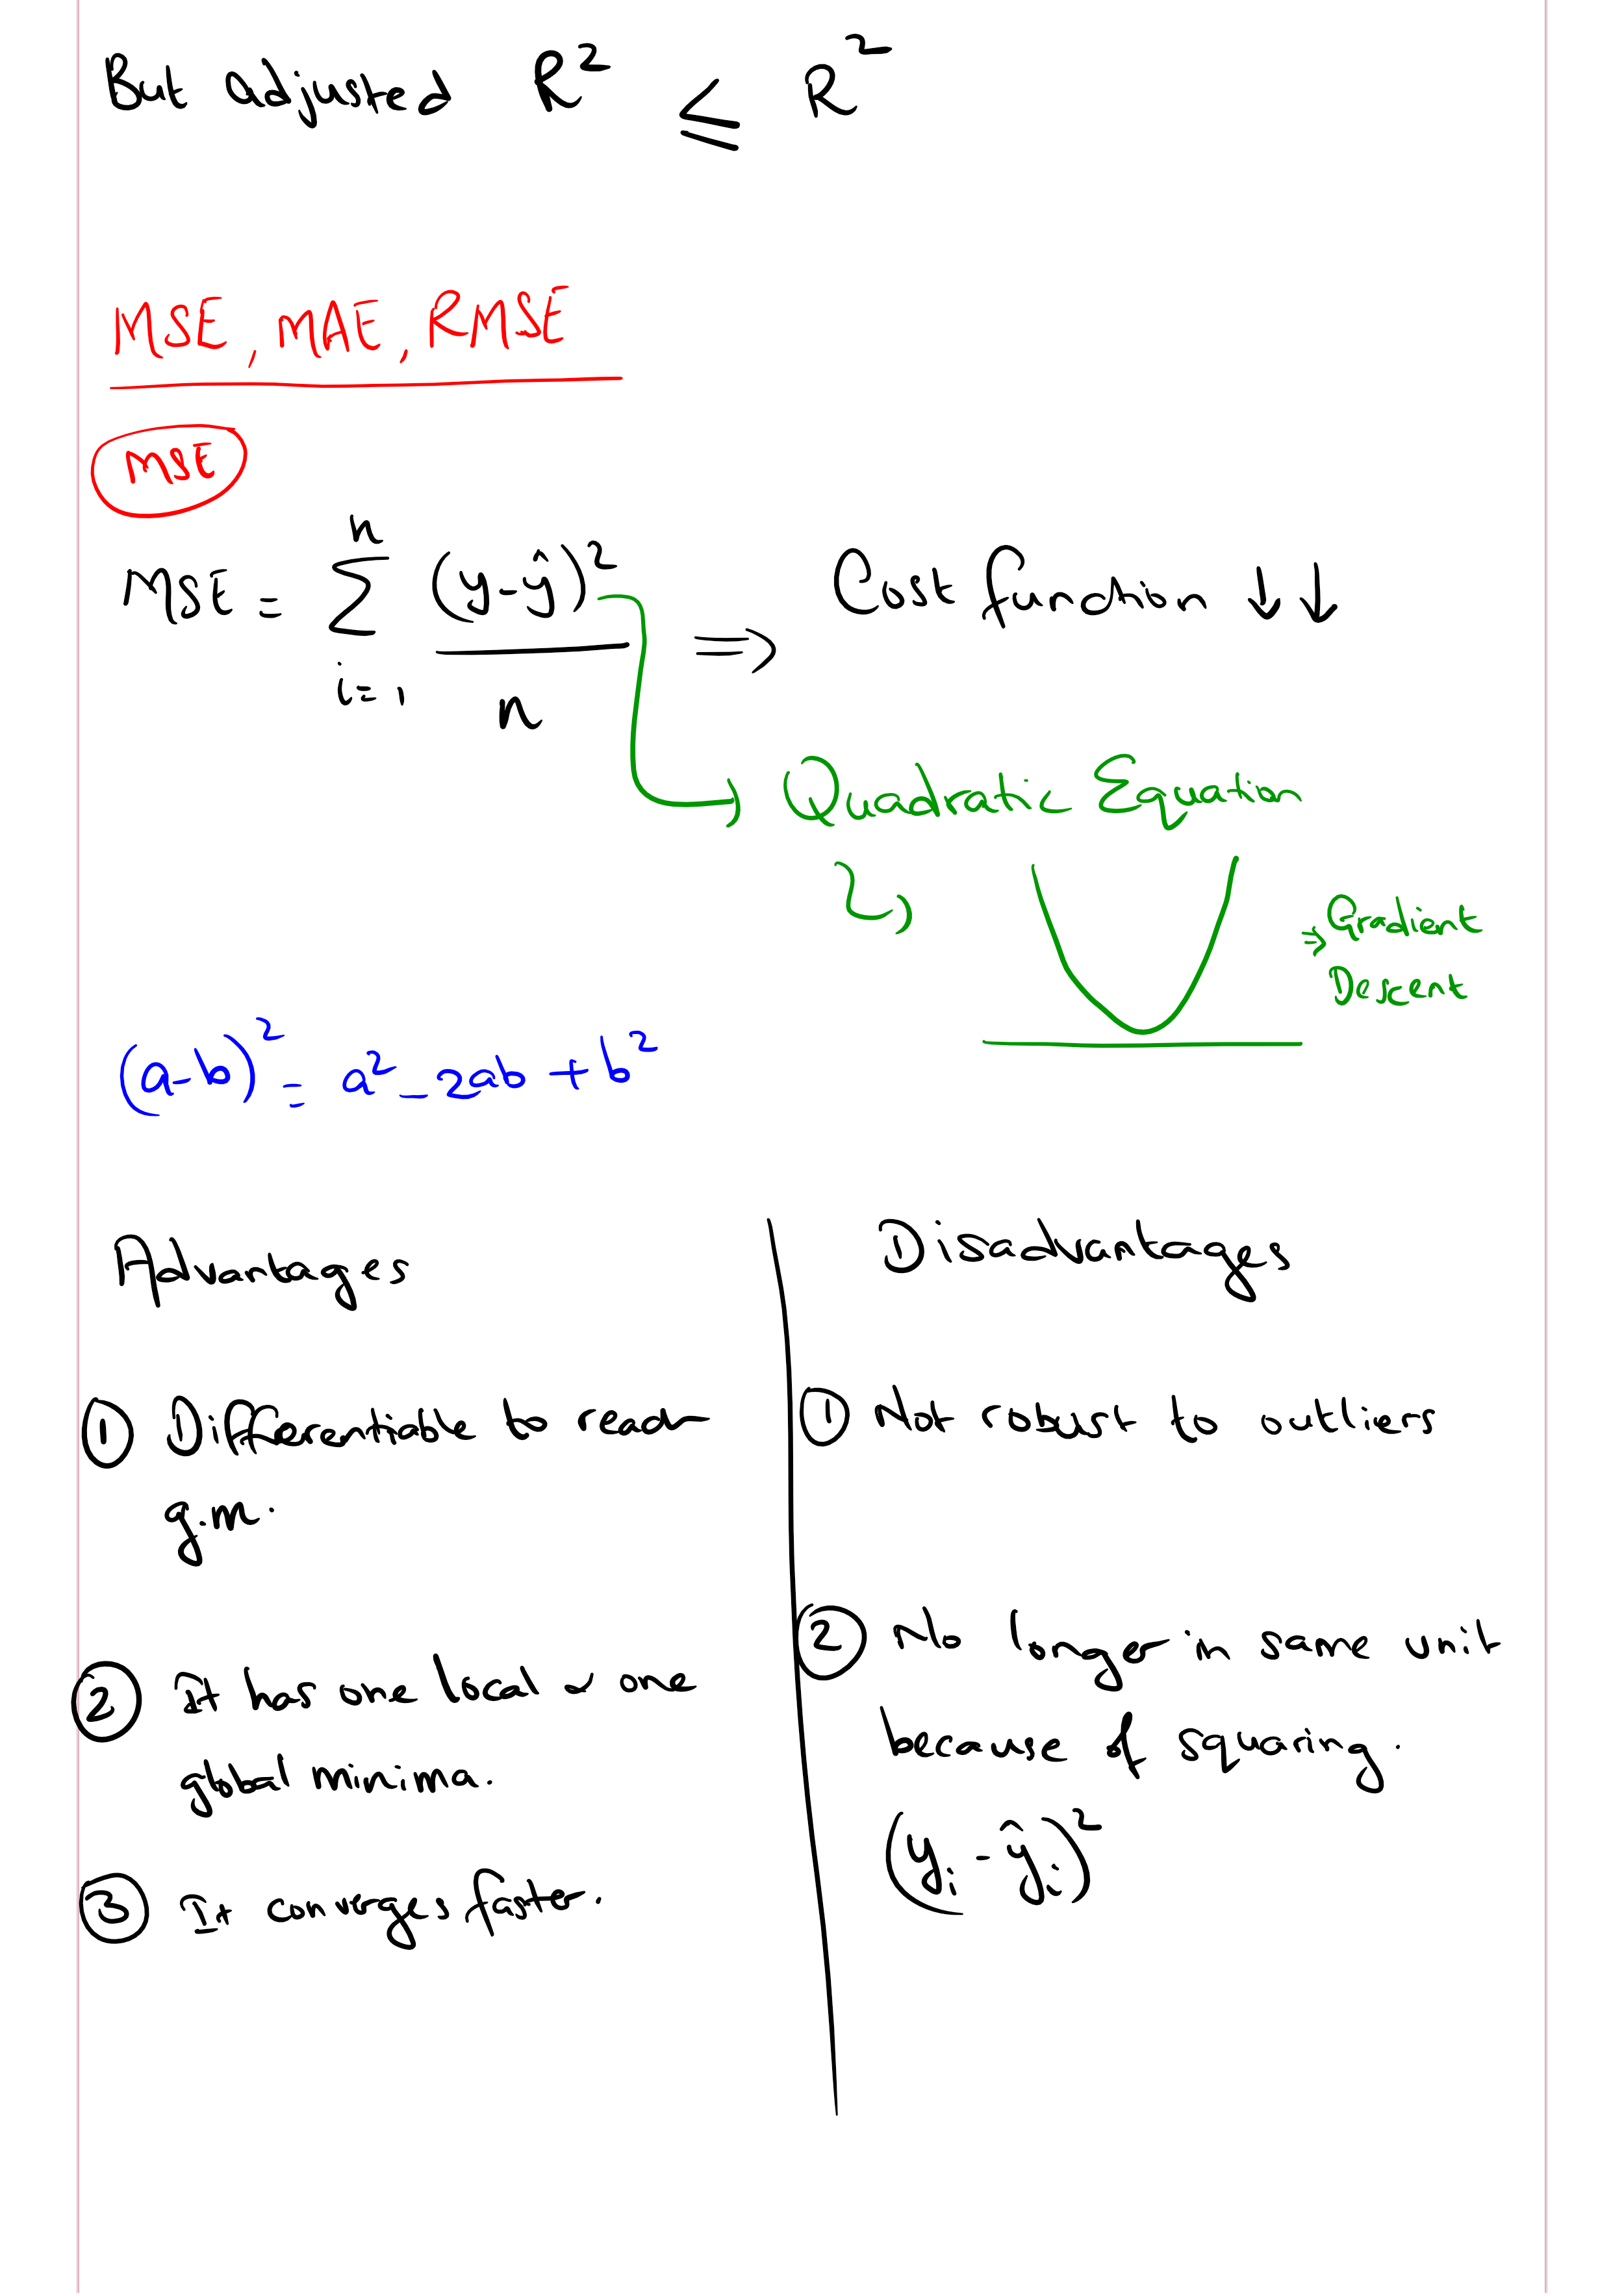 But adjusted R² ≤ R²
MSE, MAE, RMSE
MSE
MSE = n Σ i=1 (y-ŷ)² / n ⇒ Cost function ↓↓
Quadratic Equation
⇒ Gradient
Descent
(a-b)² = a² - 2ab + b²
Advantages
① Differentiable to reach
g.m.
② It has one local & one
global minima.
③ It converges faster.
Disadvantages
① Not robust to outliers
② No longer in same unit
because of squaring.
(yᵢ - ŷᵢ)²